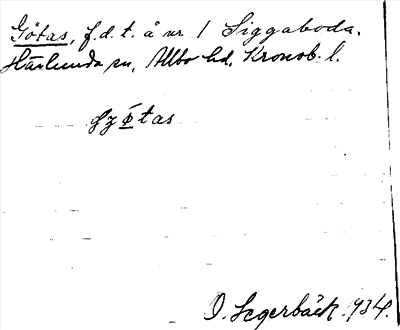 Götas, f.d.t. å nr 1 Siggaboda.
Härlunda sn, Allbo hd. Kronob. l.
O. Segerbäck. 1934.